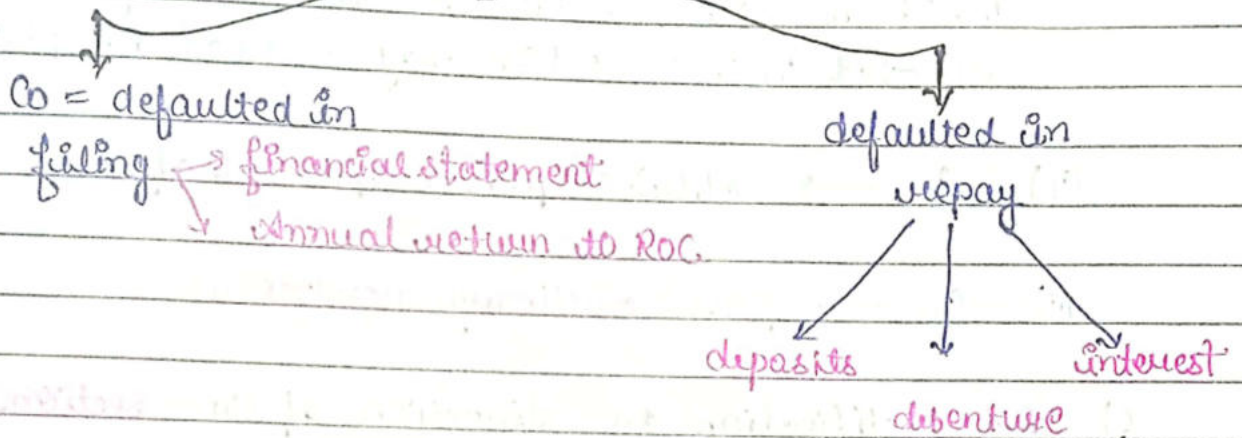 Co = defaulted in
filing → financial statement
Annual return to ROC.
defaulted in
repay
deposits
debenture
interest